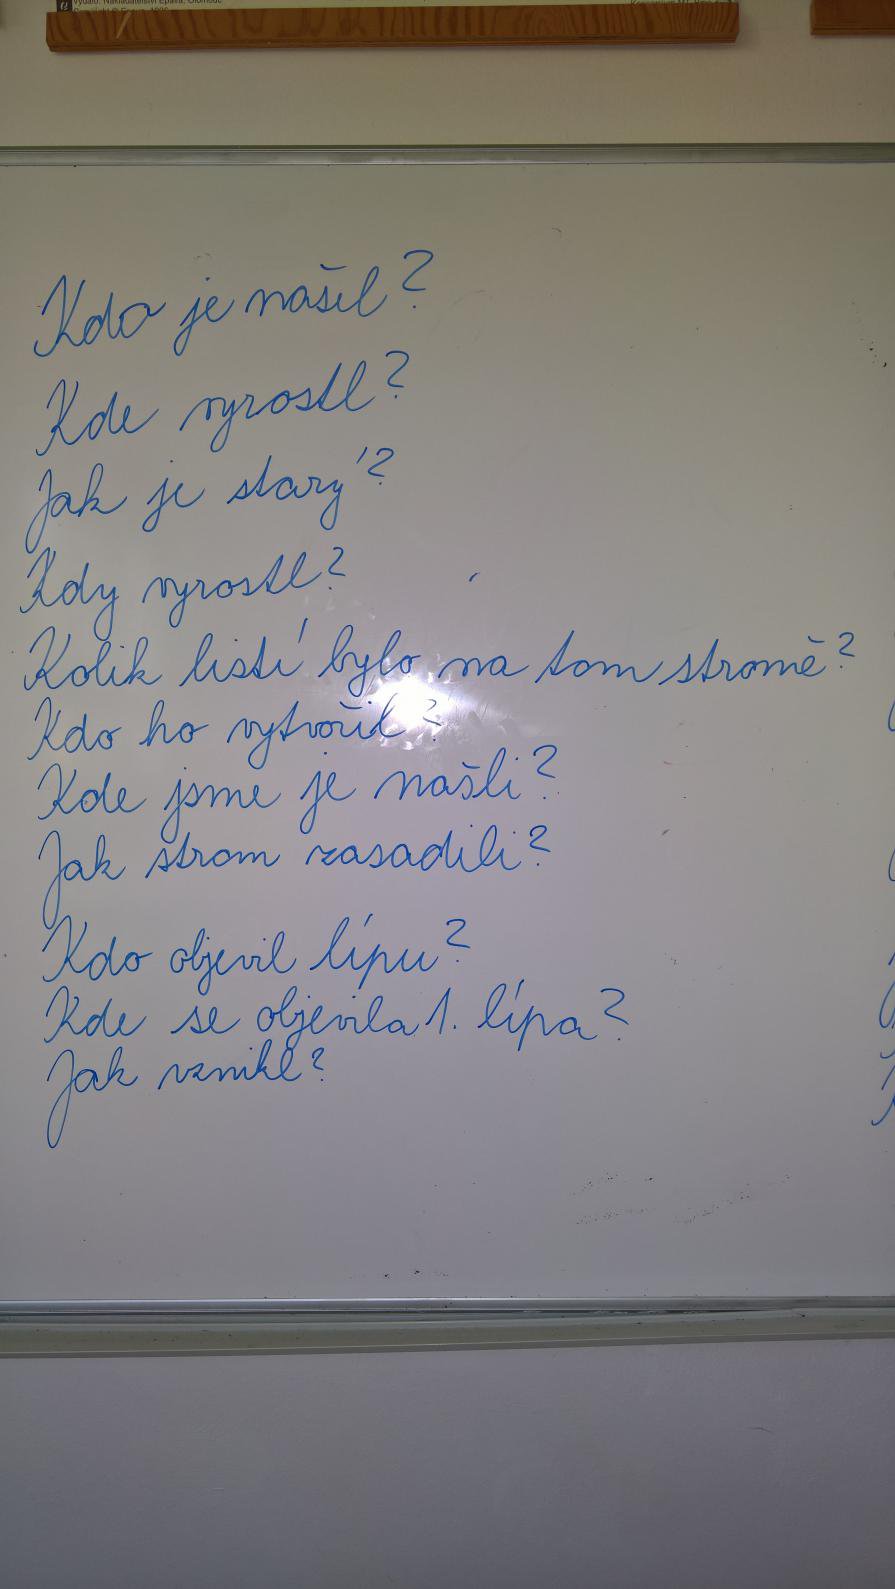 Vydalo: Nakladatelství Epava, Olomouc
Kdo je našil?
Kde vyrostl?
Jak je starý?
Kdy vyrostl?
Kolik listí bylo na tom stromě?
Kdo ho vytvořil?
Kde jsme je našli?
Jak strom zasadili?
Kdo objevil lípu?
Kde se objevila 1. lípa?
Jak vznikl?